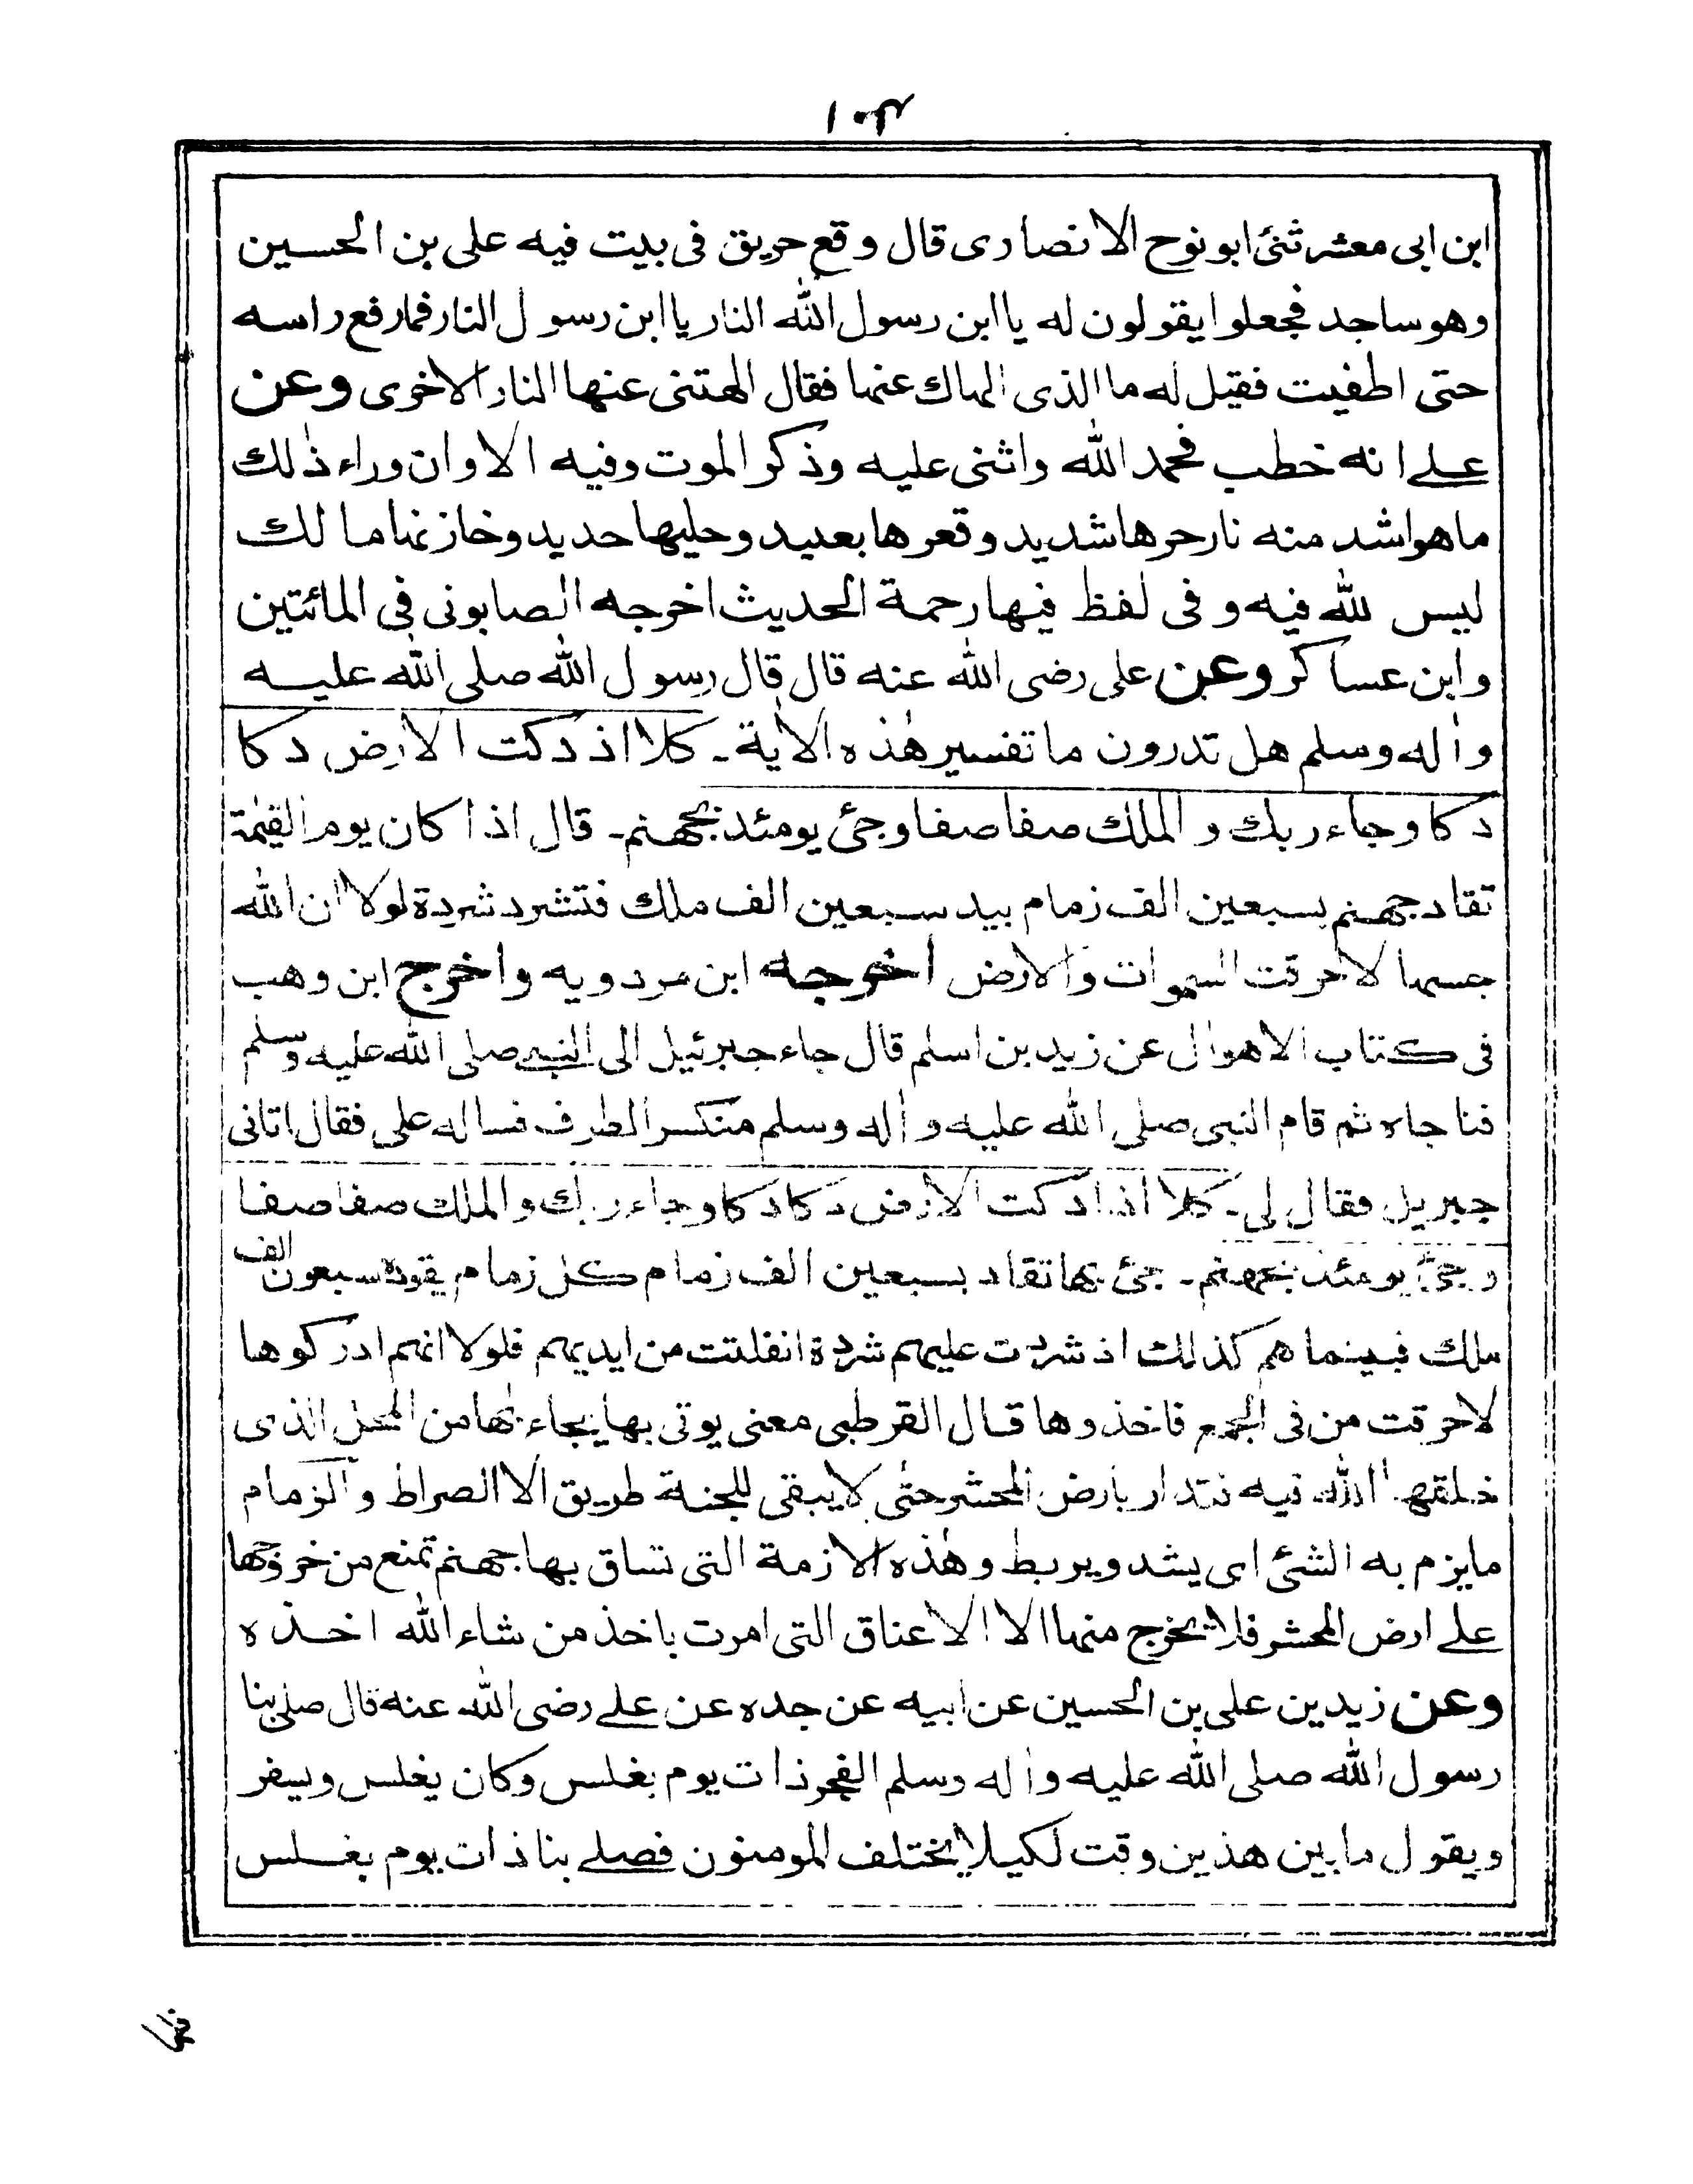 ابن ابى معشر ثنى ابو نوح الانصارى قال وقع حريق فى بيت فيه على بن الحسين
وهو ساجد فجعلوا يقولون له يا ابن رسول الله النار يا ابن رسول النار فما رفع راسه
حتى اطفيت فقيل له ما الذى الهاك عنها فقال الهتنى عنها النار الاخرى وعن
على انه خطب فحمد الله واثنى عليه وذكر الموت وفيه الا وان وراء ذٰلك
ما هو اشد منه نار حرها شديد وقعرها بعيد وحليها حديد وخازنها مالك
ليس لله فيه و فى لفظ فيها رحمة الحديث اخرجه الصابونى فى المائتين
وابن عساكر وعن على رضى الله عنه قال قال رسول الله صلى الله عليه
واٰله وسلم هل تدرون ما تفسير هٰذه الاٰية ـ كلا اذ دكت الارض دكا
دكا وجاء ربك و الملك صفا صفا وجئ يومئذ بجهنم ـ قال اذا كان يوم القيٰمة
تقاد جهنم بسبعين الف زمام بيد سبعين الف ملك فتشرد شردة لولا ان الله
حبسها لاحرقت السموات والارض اخرجه ابن مردويه واخرج ابن وهب
فى كتاب الاهوال عن زيد بن اسلم قال جاء جبرئيل الى النبى صلى الله عليه وسلم
فناجاه ثم قام النبى صلى الله عليه و اٰله وسلم منكسر الطرف فساله على فقال اتانى
جبريل فقال لى ـ كلا اذا دكت الارض دكا دكا وجاء ربك والملك صفا صفا
وجئ يومئذ بجهنم ـ جئ بها تقاد بسبعين الف زمام كل زمام يقوده سبعون الف
ملك فبينما هم كذلك اذ شردت عليهم شردة انفلتت من ايديهم فلولا انهم ادركوها
لاحرقت من فى الجمع فاخذوها قال القرطبى معنى يوتى بها يجاء بها من المحل الذى
خلقها الله فيه فتدار بارض المحشر حتى لا يبقى للجنة طريق الا الصراط والزمام
ما يزم به الشئ اى يشد ويربط وهٰذه الازمة التى تساق بها جهنم تمنع من خروجها
على ارض المحشر فلا يخرج منها الا الاعناق التى امرت باخذ من شاء الله اخذه
وعن زيد بن على بن الحسين عن ابيه عن جده عن على رضى الله عنه قال صلى بنا
رسول الله صلى الله عليه واٰله وسلم الفجر ذات يوم بغلس وكان يغلس ويسفر
ويقول ما بين هذين وقت لكيلا يختلف المومنون فصلى بنا ذات يوم بغلس